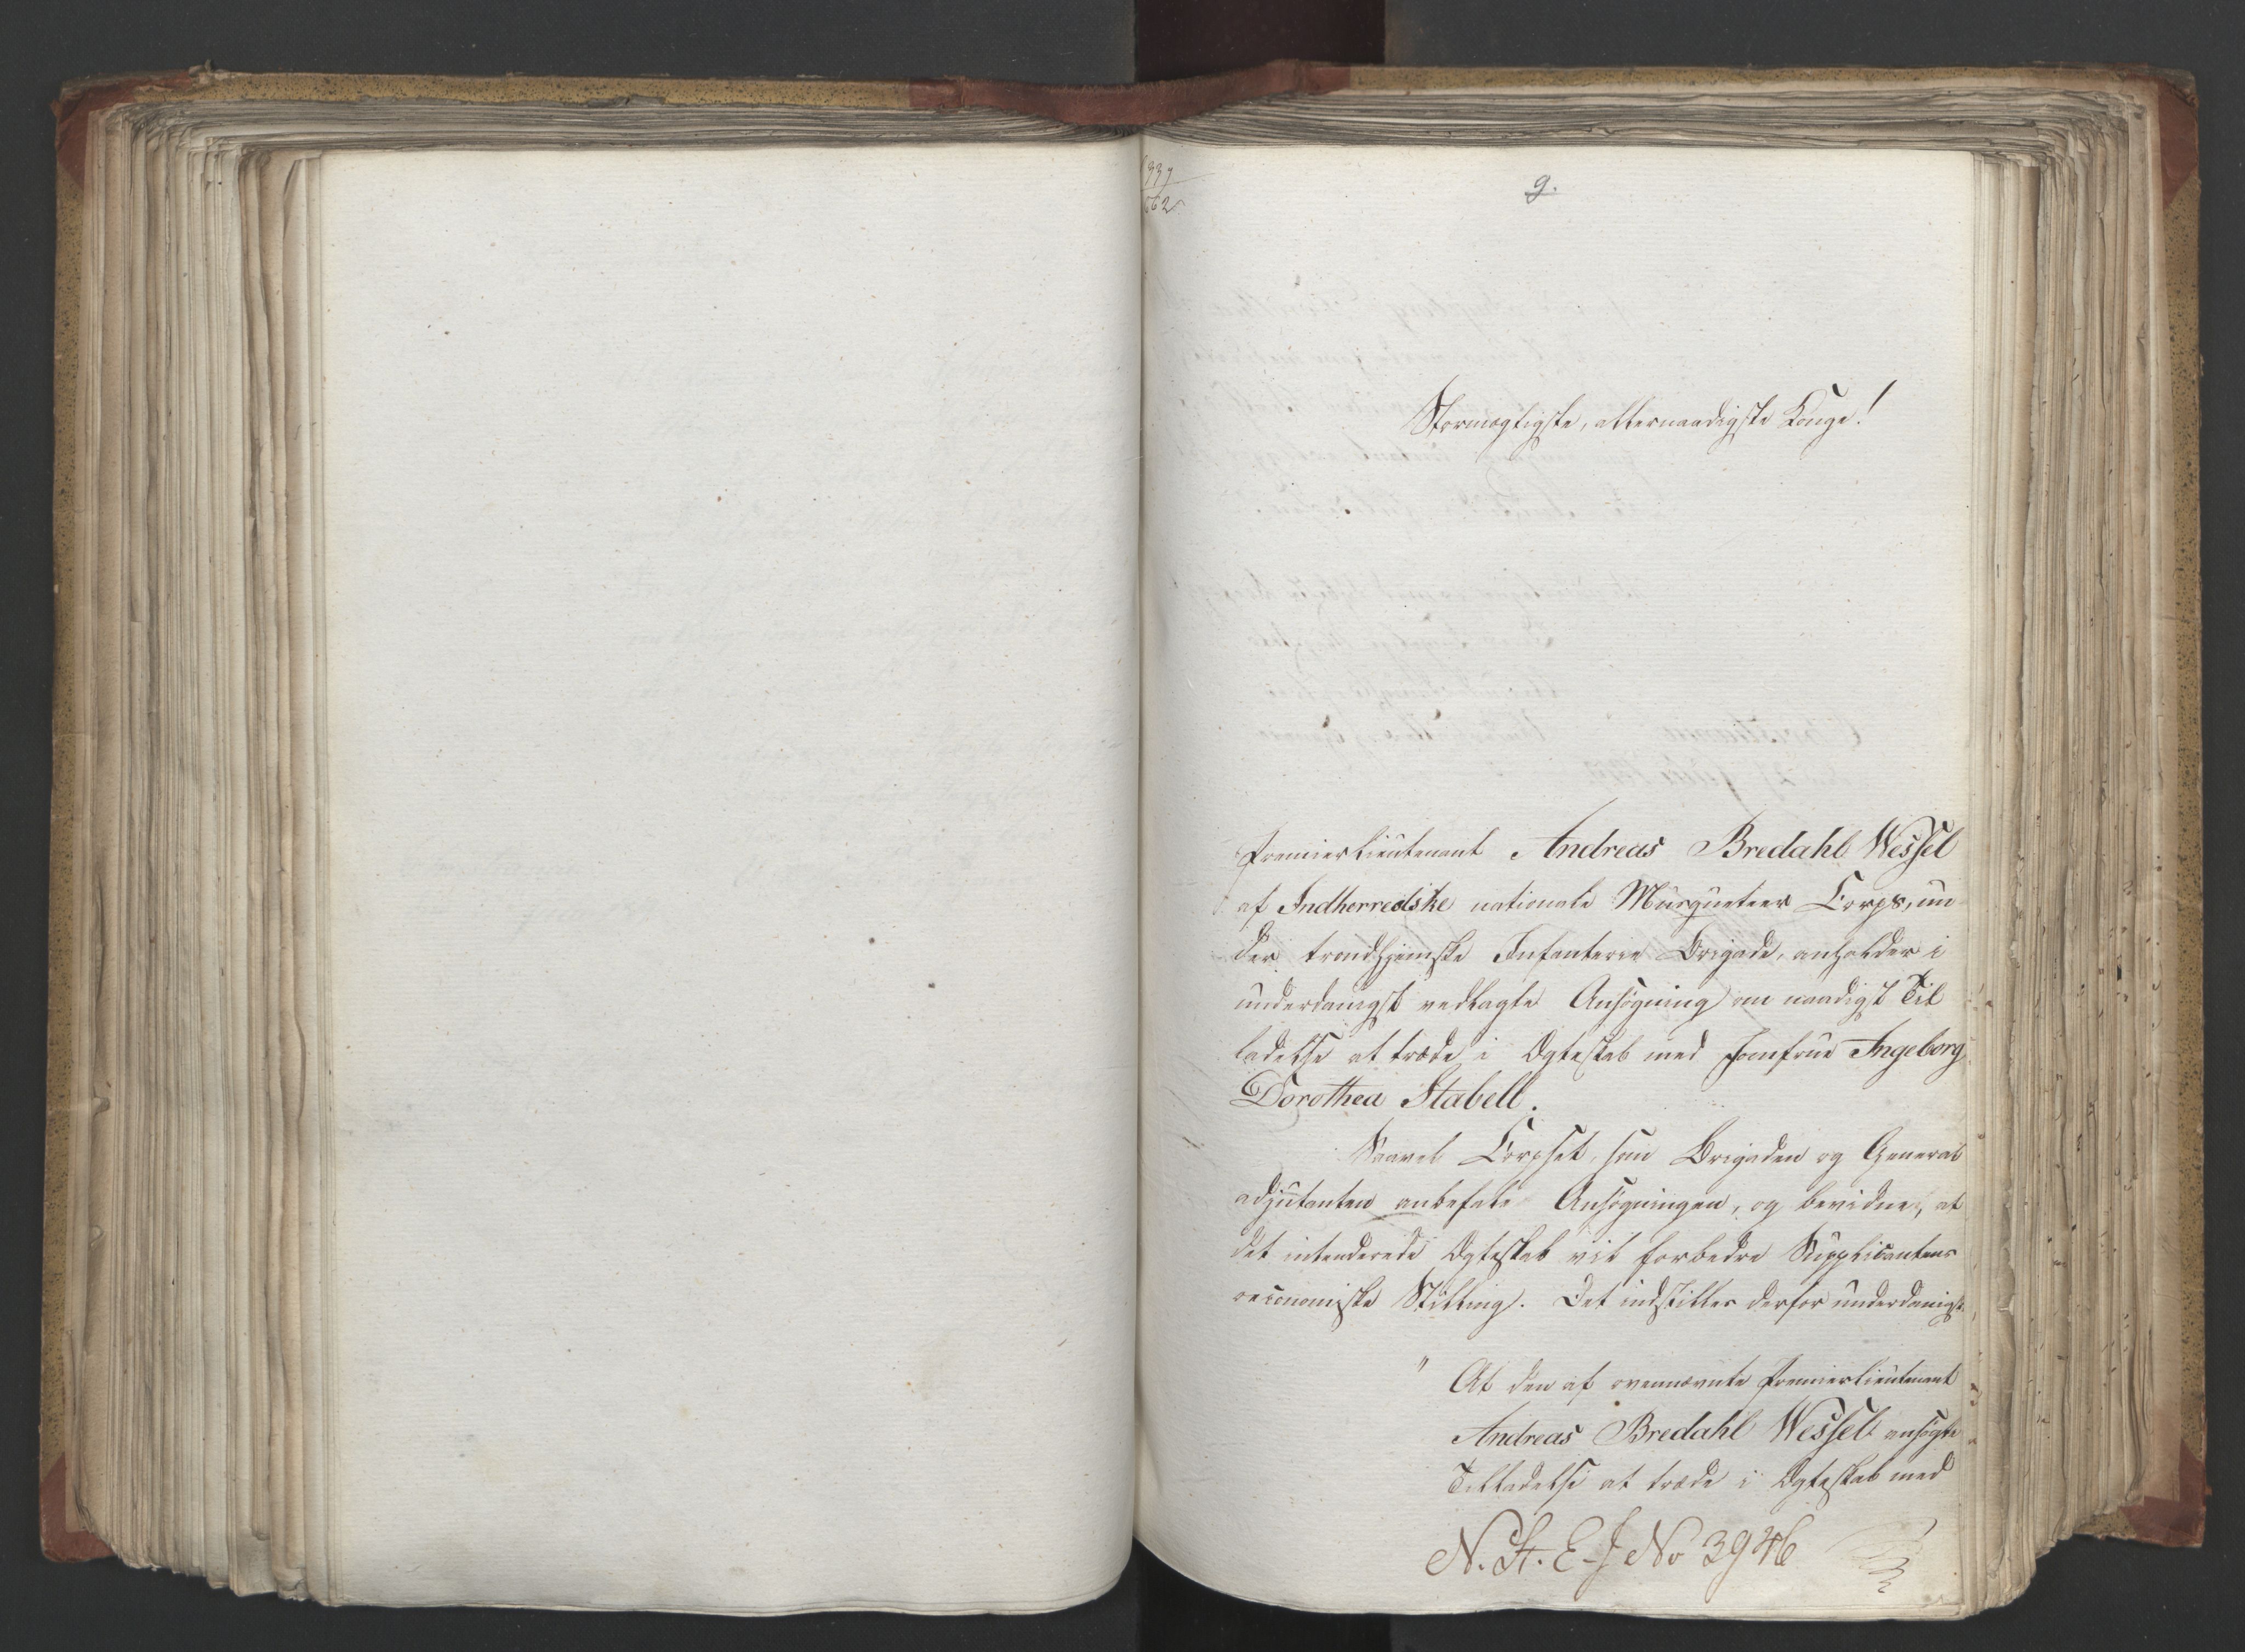 9.
Stormægtigste, allernaadigste Konge!
Premierlieutenant Andreas Bredahl Wessel
af Indherredske nationale Musqueteer Corps, un
der trondhjemske Infanterie Brigade, anholder i
underdanigst vedlagte Ansøgning om naadigst Til
ladelse at træde i Ægteskab med Jomfrue Ingeborg
Dorothea Stabell.
Saavel Corpset, som Brigaden og General
adjutanten anbefale Ansøgningen, og bevidne, at
det intenderede Ægteskab vil forbedre Supplicantens
oeconomiske Stilling. Det indstilles derfor underdanigst
" At den af ovennævnte Premierlieutenant
Andreas Bredahl Wessel ansøgte
Tilladelse at træde i Ægteskab med
N. St. E-J No 3946